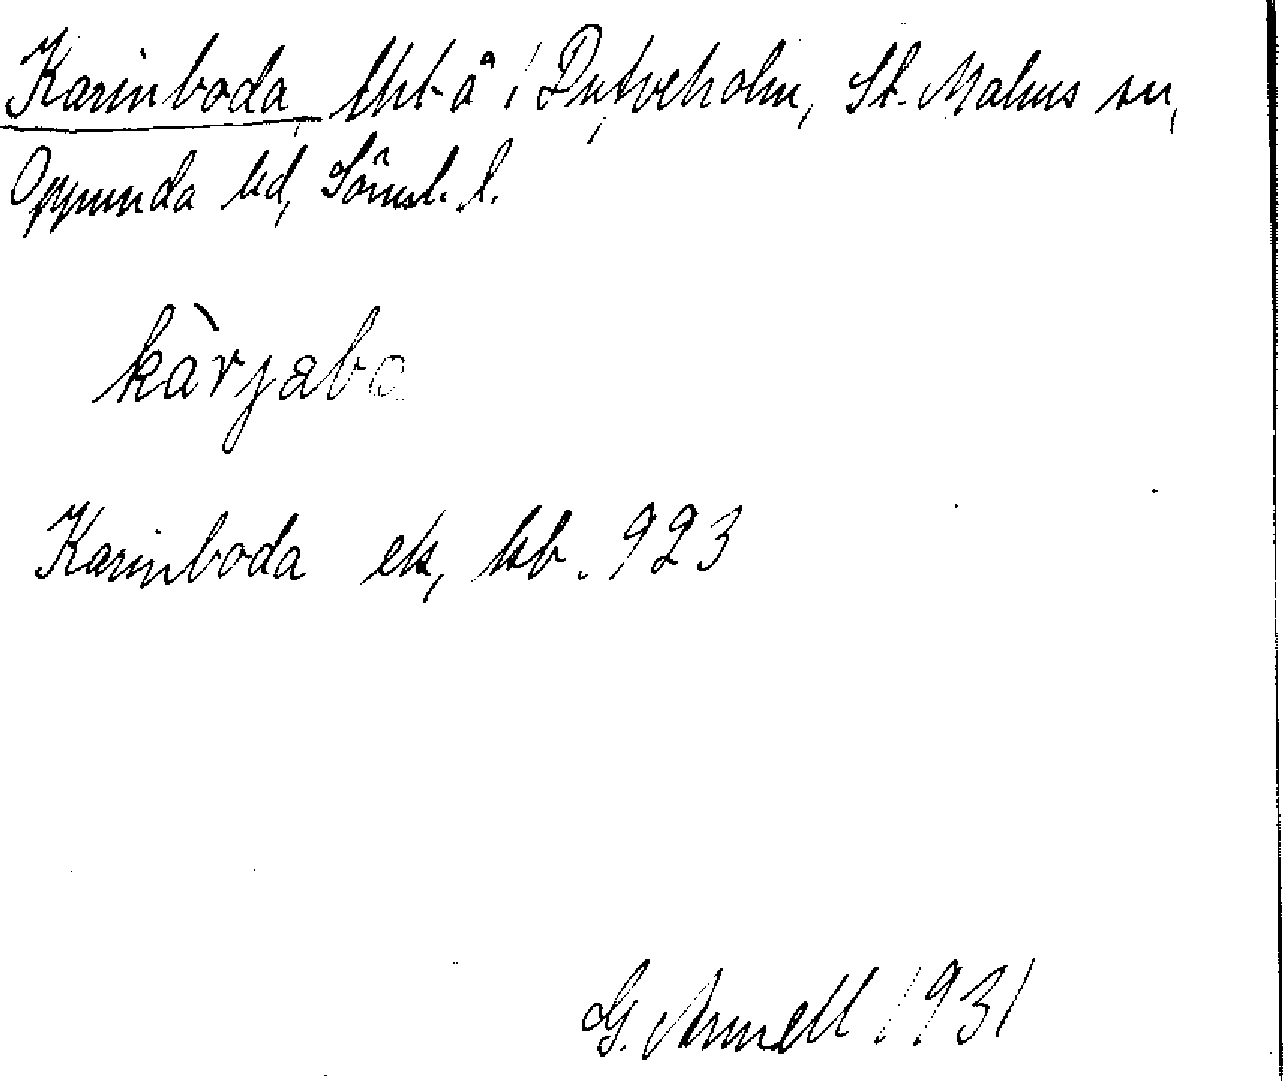 Karinboda, lht å 1 Dufveholm, St. Malms sn,
Oppunda hd, Södml. l.
kàrjabo
Karinboda ek, kb. 923
G. Arnell 1931